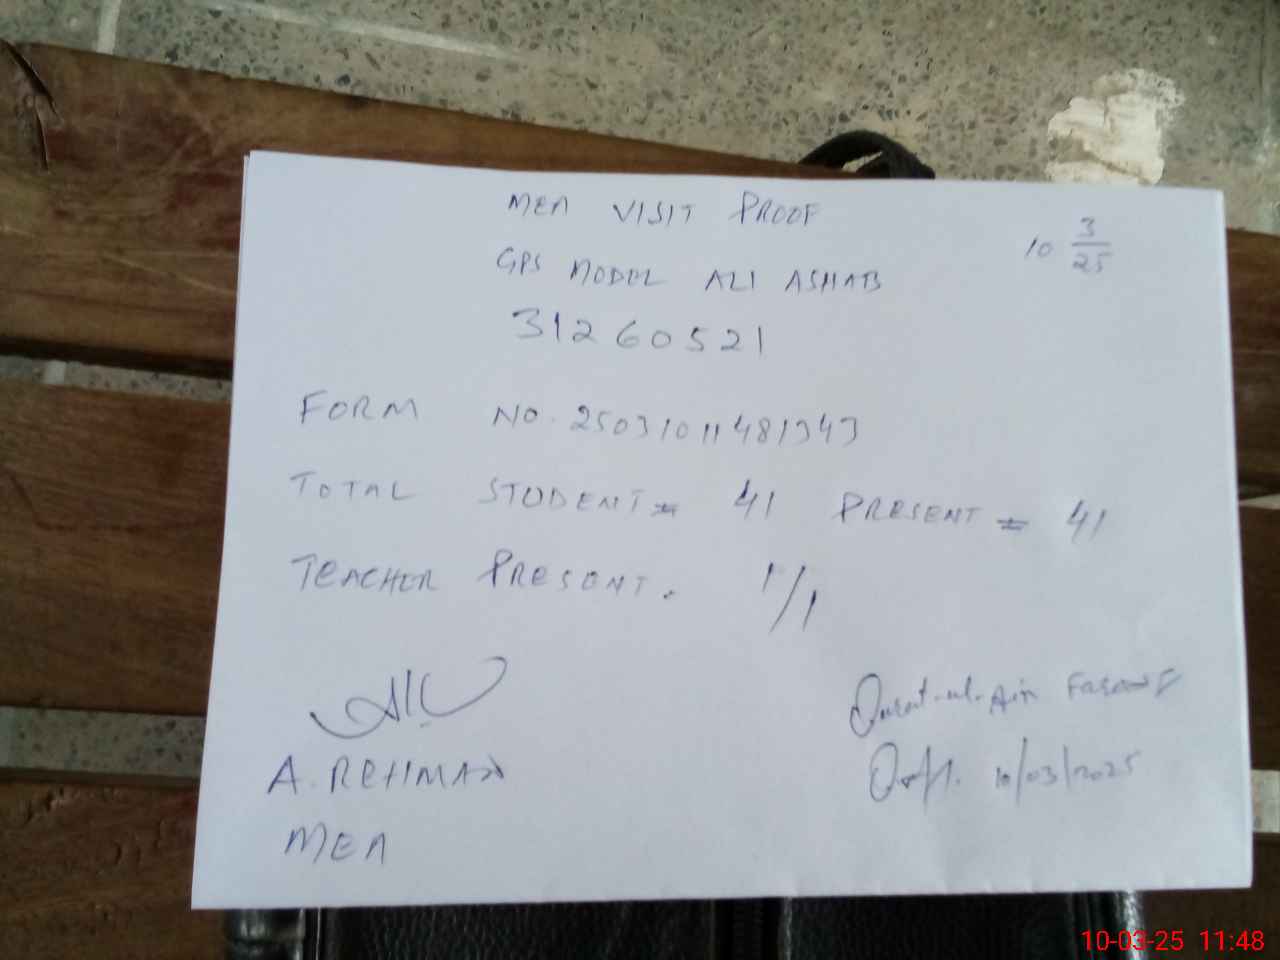 MEA VISIT PROOF
10 3/25
GPS MODEL ALI ASHAB
31260521
FORM NO. 25031011481343
TOTAL STUDENT = 41 PRESENT = 41
TEACHER PRESENT. 1/1
Qurat-ul-Ain Farooq
A. REHMAN
10/03/2025
MEA
10-03-25 11:48